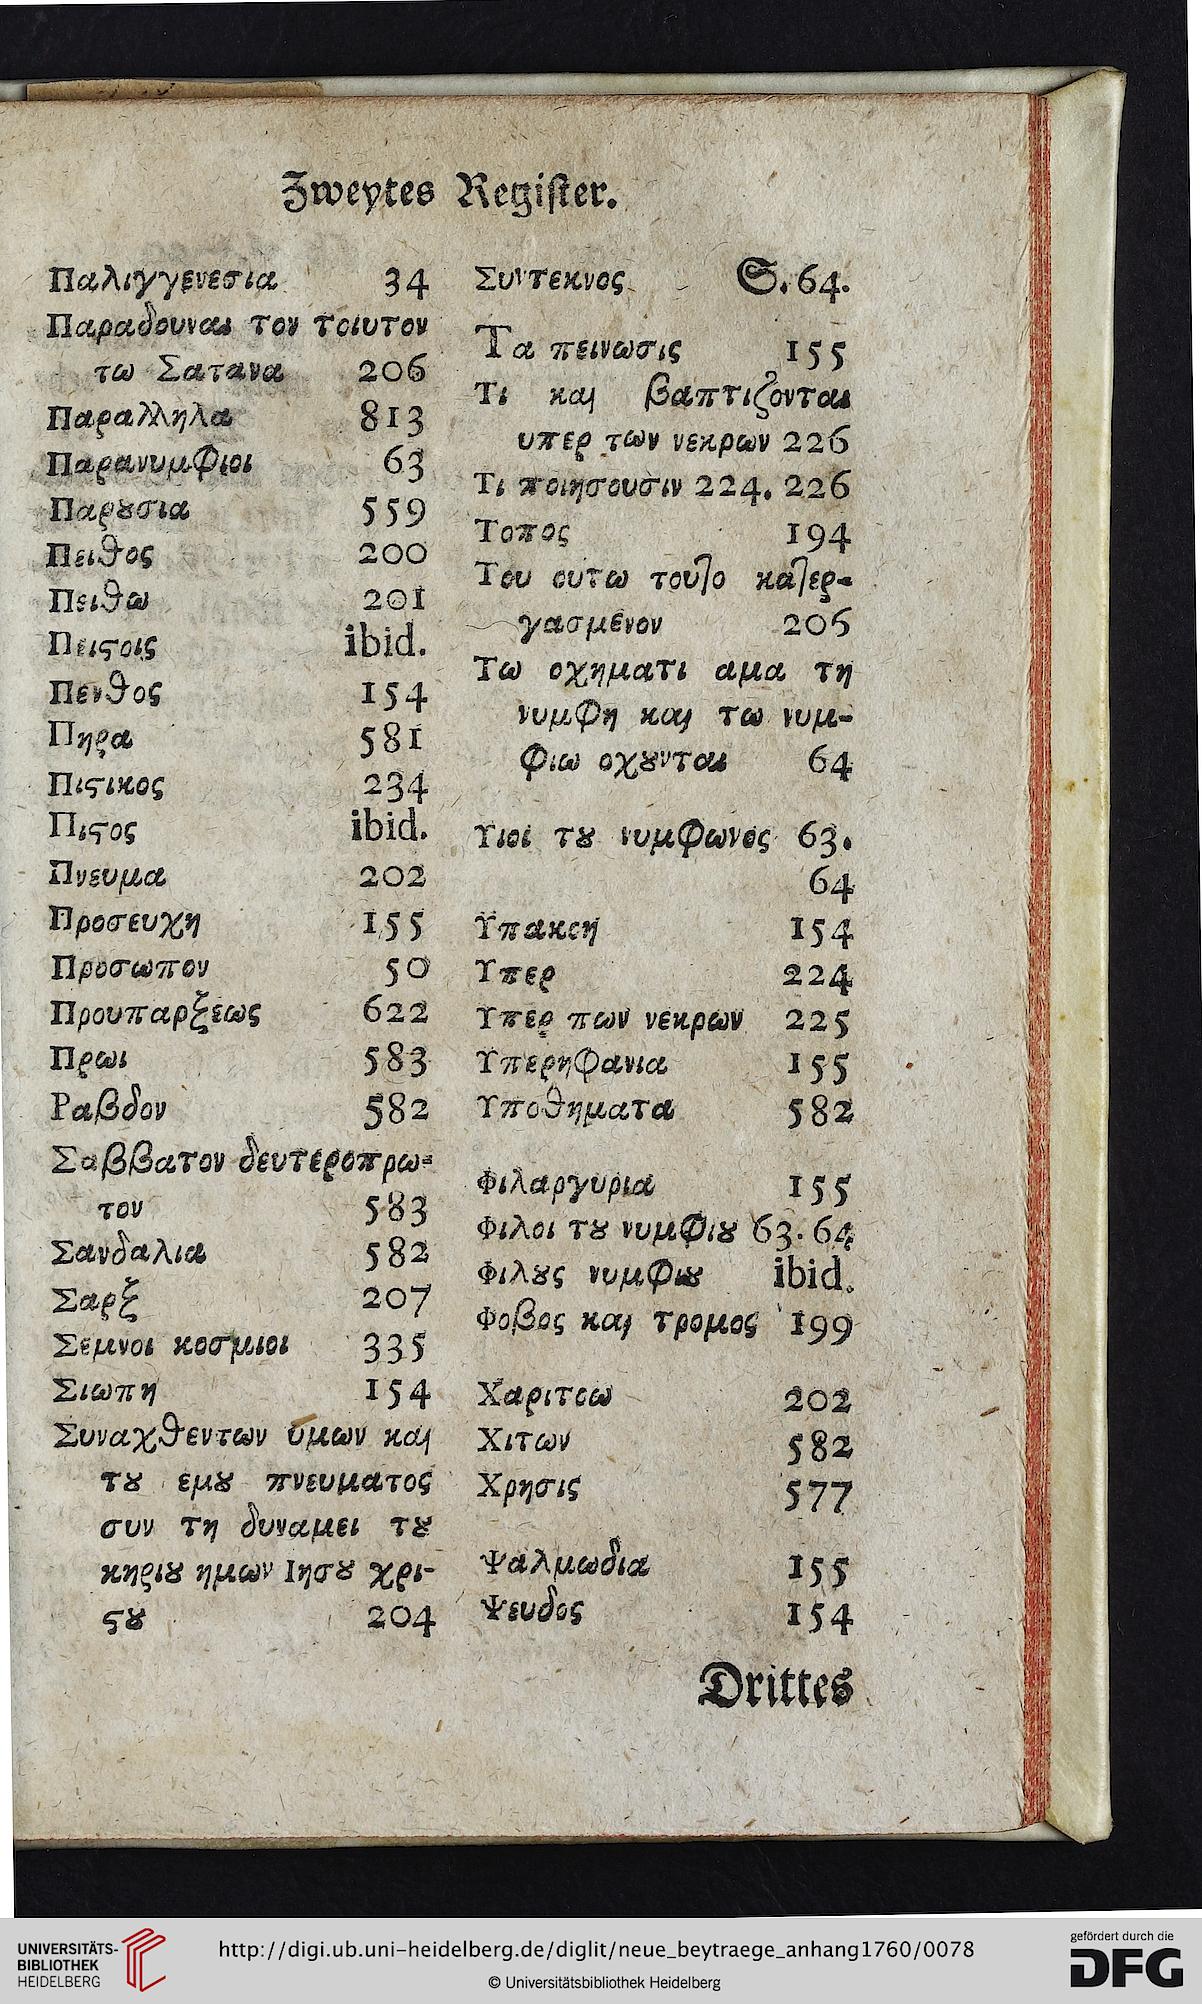 Zweytes Register.
Παλιγγενεσια 34
Παραδουναι τον τοιυτον
τω Σατανα 206
Παραλληλα 813
Παρανυμφιοι 63
Παρȣσια 559
Πειθος 200
Πειθω 201
Πειϛοις ibid.
Πενθος 154
Πηρα 581
Πιϛικος 234
Πιϛος ibid.
Πνευμα 202
Προσευχη 155
Προσωπον 50
Προυπαρξεως 622
Πρωι 583
Ραβδον 582
Σαββατον δευτεροπρω⸗
τον 583
Σανδαλια 582
Σαρξ 207
Σεμνοι κοσμιοι 335
Σιωπη 154
Συναχθεντων υμων και
τȣ εμȣ πνευματος
συν τη δυναμει τȣ
κηριȣ ημων Ιησȣ χρι-
ϛȣ 204
Συντεκνος S. 64.
Τα πεινωσις 155
Τι και βαπτιζονται
υπερ των νεκρων 226
Τι ποιησουσιν 224. 226
Τοπος 194
Του ουτω τουτο κατερ-
γασμενον 205
Τω οχηματι αμα τη
νυμφη και τω νυμ-
φιω οχȣνται 64
Υιοι τȣ νυμφωνος 63.
64
Υπακοη 154
Υπερ 224
Υπερ πων νεκρων 225
Υπερηφανια 155
Υποθηματα 582
Φιλαργυρια 155
Φιλοι τȣ νυμφιȣ 63. 64
Φιλȣς νυμφιȣ ibid.
Φοβος και τρομος 199
Χαριτοω 202
Χιτων 582
Χρησις 577
Ψαλμωδια 155
Ψευδος 154
Drittes
UNIVERSITÄTS-
BIBLIOTHEK
HEIDELBERG
http://digi.ub.uni-heidelberg.de/diglit/neue_beytraege_anhang1760/0078
© Universitätsbibliothek Heidelberg
gefördert durch die
DFG